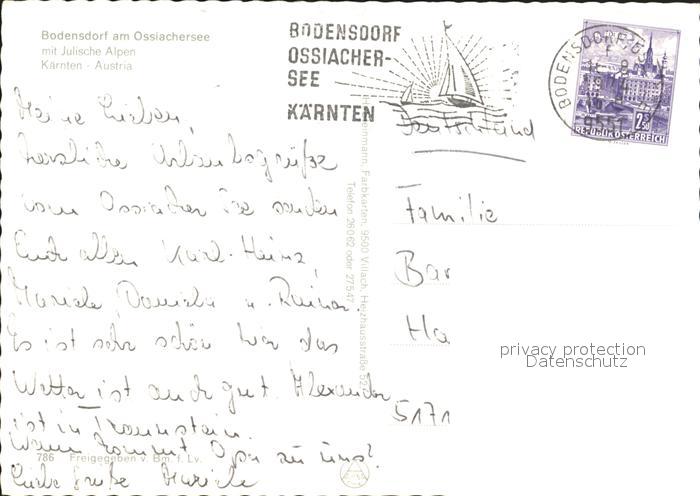 Bodensdorf am Ossiachersee
mit Julische Alpen
Kärnten - Austria
BODENSDORF
OSSIACHER-
SEE
KÄRNTEN
BODENSDORF
9551
2.50
REPUBLIK ÖSTERREICH
Meine Lieben,
herzliche Urlaubsgrüße
vom Ossiacher See senden
Euch allen Karl-Heinz,
Mariele, Daniela u. Rainer.
Es ist sehr schön hier das
Wetter ist auch gut. Alexander
ist in Traunstein.
Wann kommt Opa zu uns?
Liebe Grüße Mariele
786 Freigegeben v. Bm. f. Lv.
Farbkarten, 9500 Villach, Heizhausstraße
Telefon 26062 oder 27547
Deutschland
Familie
Bar
Ha
5171
privacy protection
Datenschutz